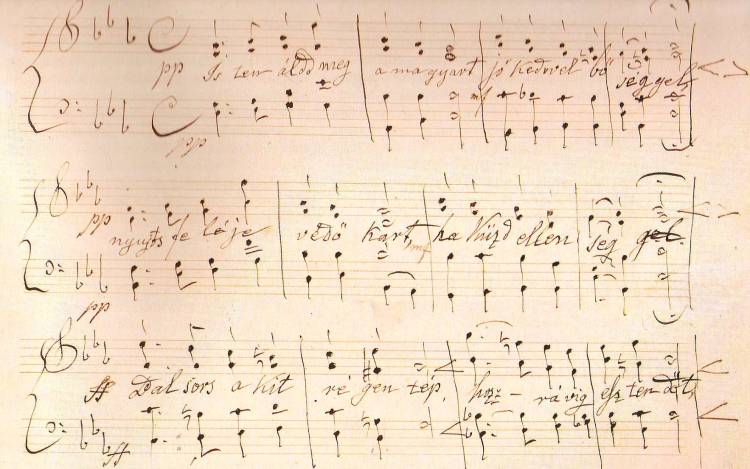 pp Is ten áldd meg a magyart jó kedvvel bő séggel,
mf
pp
pp nyujts fe léje védő kart, ha küzd ellen ség gel.
mf
pp
ff Bal sors a kit ré gen tép, hoz – rá víg esz ten dőt,
ff